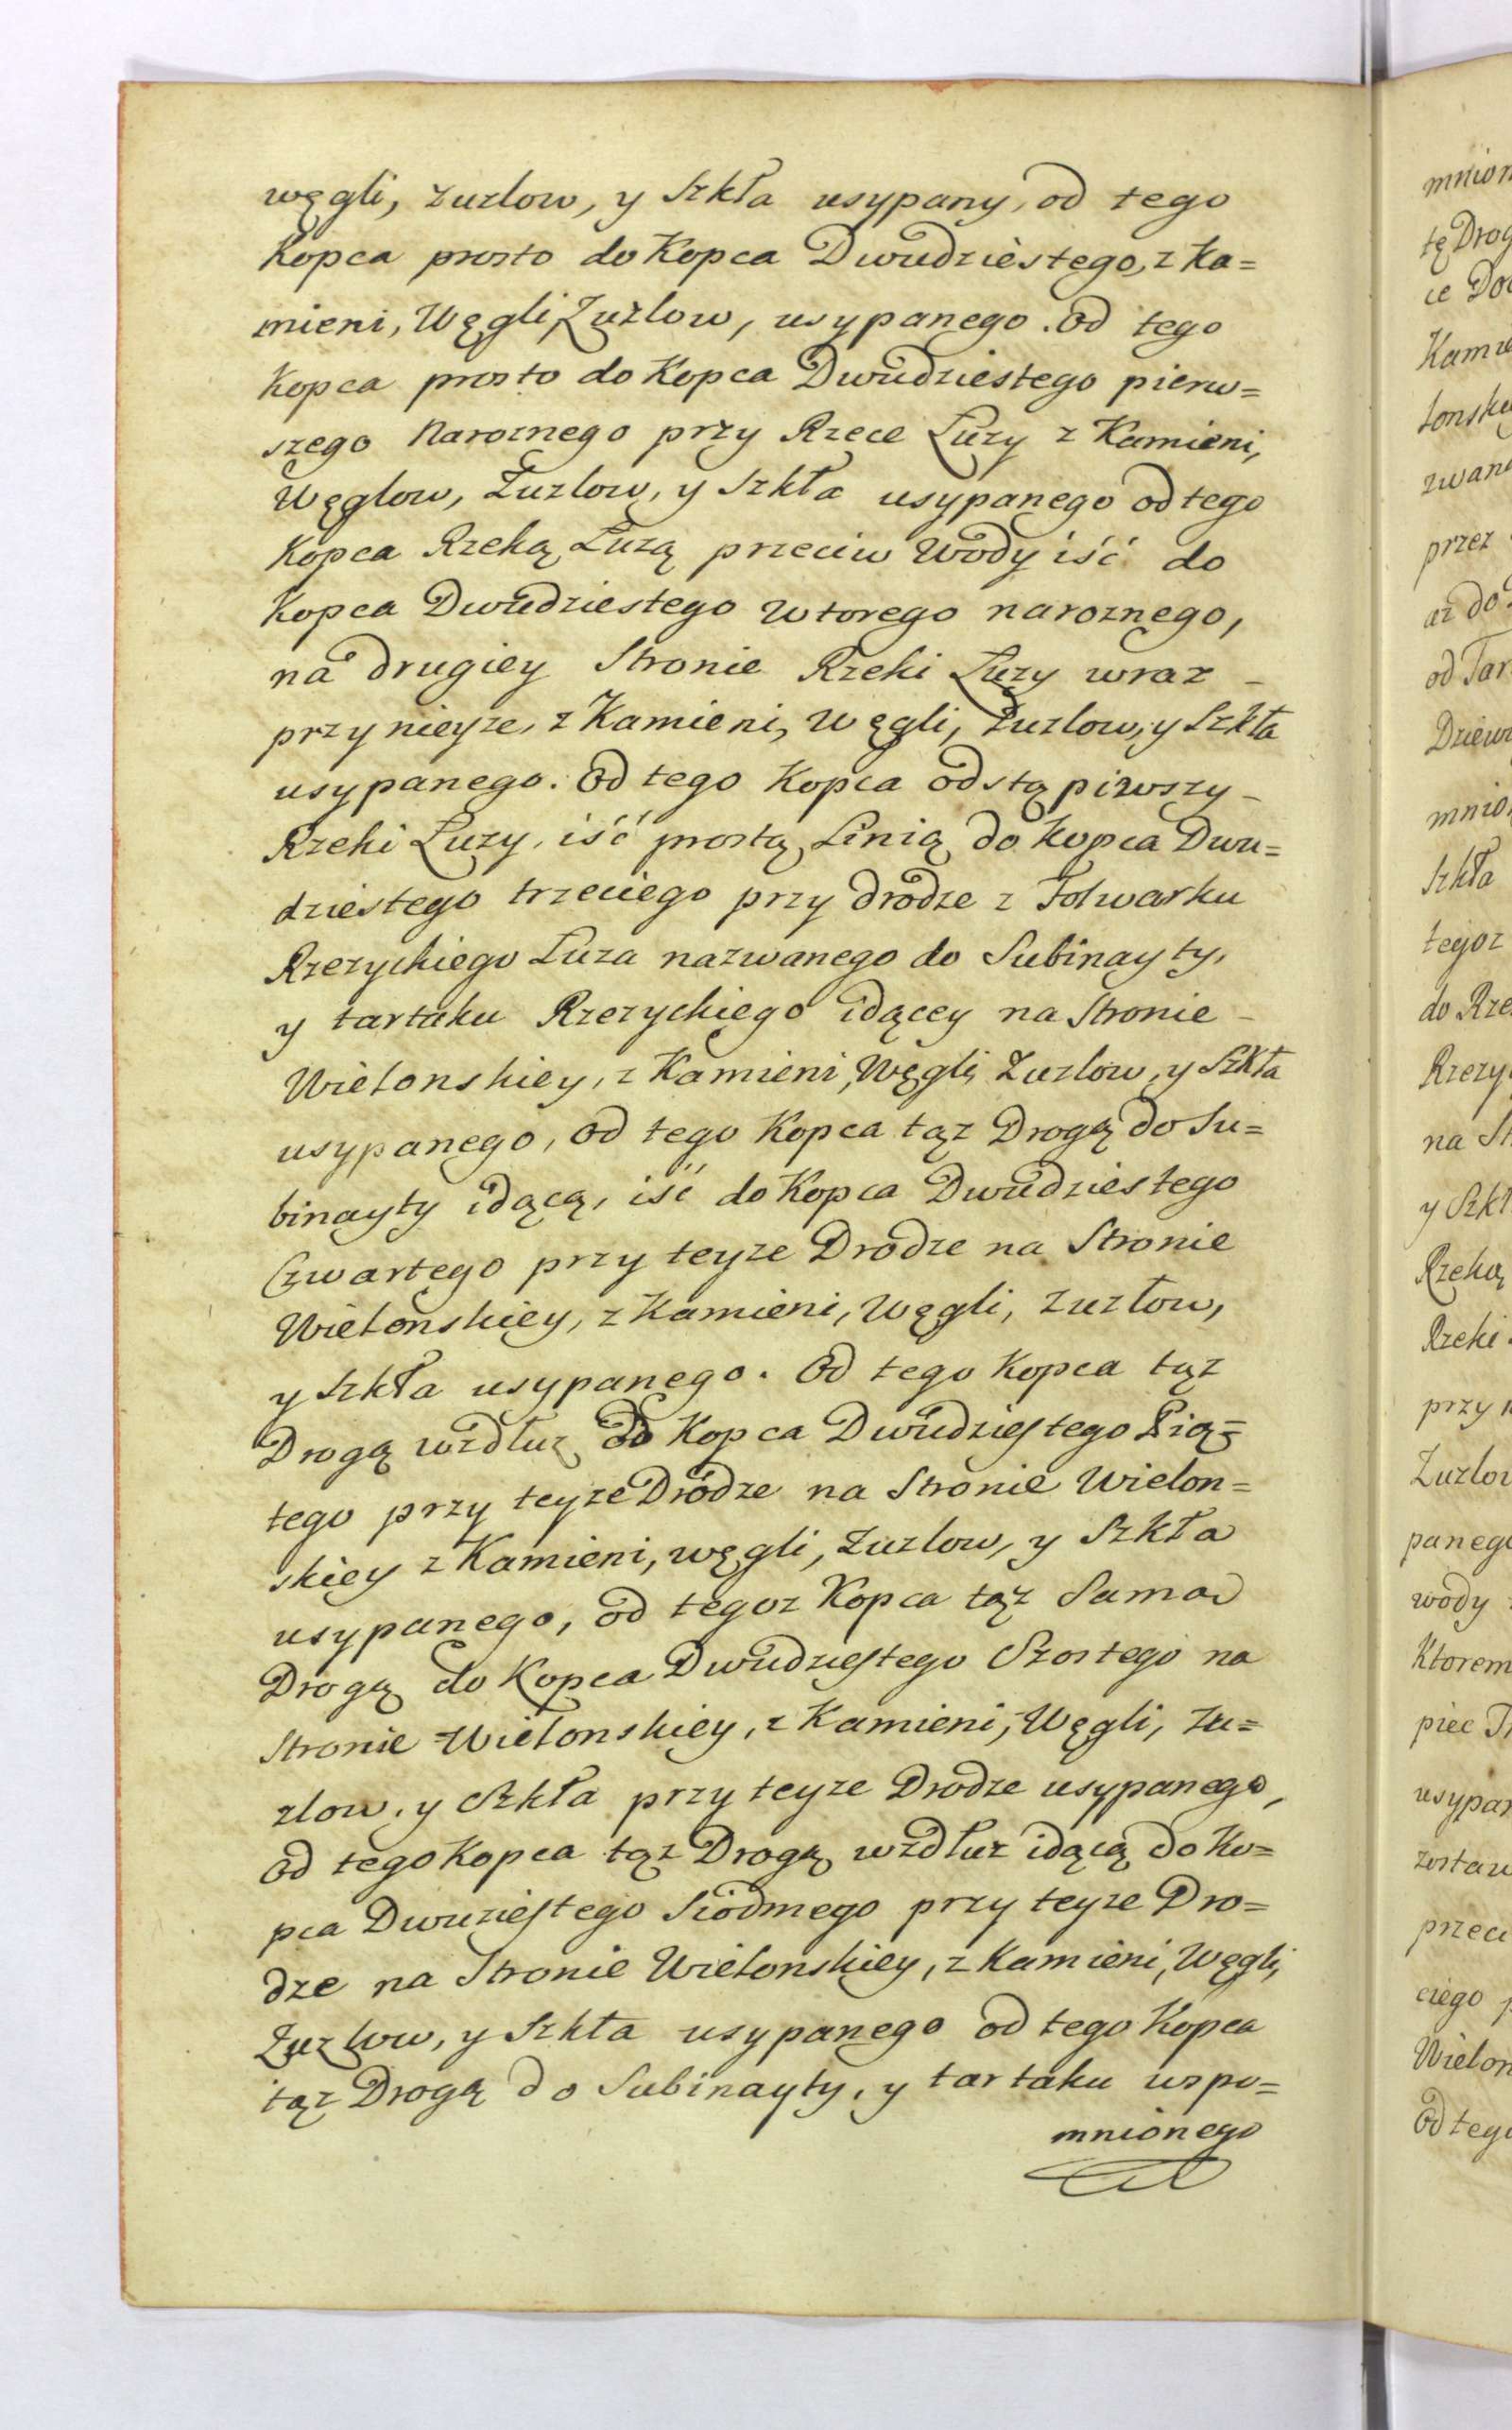 węgli, zuzlow, y Szkła usypany, od tego
Kopca prosto do Kopca Dwudziestego, z Ka=
mieni, Węgli, Zuzlow, usypanego. Od tego
Kopca prosto do Kopca Dwudziestego pierw=
szego Naroznego przy Rzece Łuzy z Kamieni,
Węglow, Zuzlow, y Szkła usypanego od tego
Kopca Rzeką Łuzą przeciw Wody iść do
Kopca Dwudziestego Wtorego naroznego,
na drugiey Stronie Rzeki Łuzy wraz -
przy nieyze, z Kamieni, Węgli, Zuzlow, y Szkła
usypanego. Od tego Kopca odstąpiwszy -
Rzeki Łuzy, iść prostą Linią do Kopca Dwu=
dziestego trzeciego przy drodze z Folwarku
Rzezyckiego Luza nazwanego do Subinayty,
y tartaku Rzezyckiego idącey na Stronie -
Wielonskiey, z Kamieni, Węgli, Zuzlow, y Szkła
usypanego, od tego Kopca tąz Drogą do Su=
binayty idącą, iść do Kopca Dwudziestego
Czwartego przy teyze Drodze na Stronie
Wielonskiey, z Kamieni, Węgli, Zuzłow,
y Szkła usypanego. Od tego Kopca tąz
Drogą wzdłuz do Kopca Dwudziestego Pią=
tego przy teyze Drodze na Stronie Wielon=
skiey z Kamieni, węgli, Zuzlow, y Szkła
usypanego, od tegoz Kopca tąz Samą
Drogą do Kopca Dwudziestego Szostego na
Stronie Wielonskiey, z Kamieni, Węgli, Zu=
zlow, y Szkła przy teyze Drodze usypanego,
od tego Kopca tąz Drogą wzdłuz idącą do Ko=
pca Dwuziestego Siodmego przy teyze Dro=
dze na Stronie Wielonskiey, z Kamieni, Węgli,
Zuzlow, y Szkła usypanego od tego Kopca
tąz Drogą do Subinayty, y tartaku wspo=
mnionego
tę Drog
Kamie
zwane
przez
az do
od Tar
mnio
Szkła
tegoz
do Rze
Rzezy
na St
y Szkł
Rzeką
Rzeki
przy
Zuzlow
panego
wody
Ktorem
piec
usypan
zostaw
przeci
ciego
Wielon
Od tego